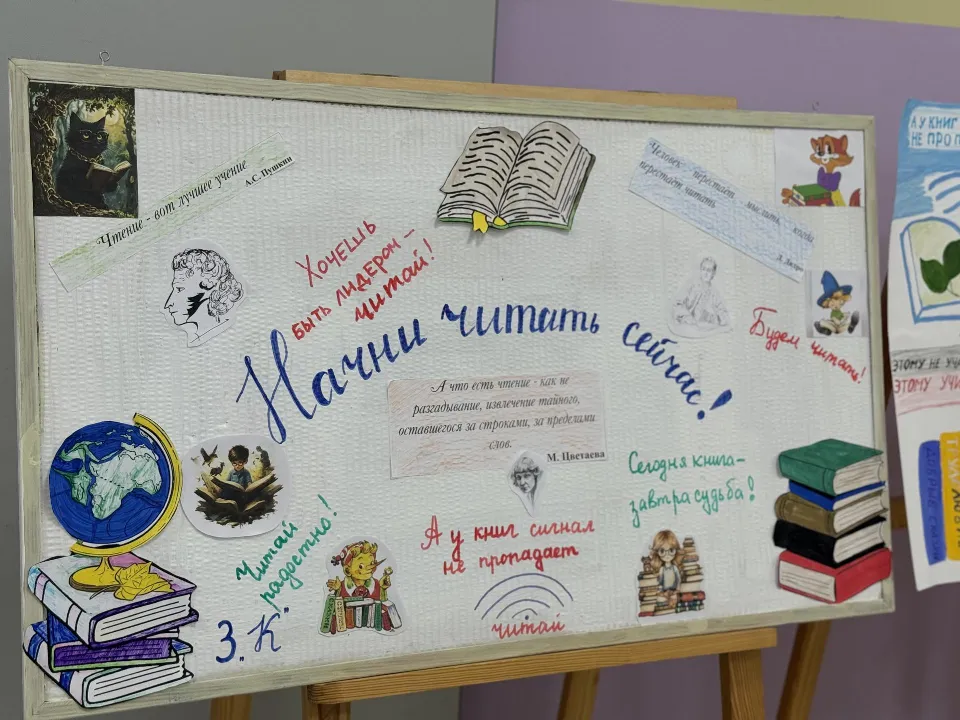 Чтение - вот лучшее учение
А.С. Пушкин
Человек перестаёт мыслить, когда
перестаёт читать
Д. Дидро
Хочешь
быть лидером -
читай!
Начни читать сейчас!
Будем читать!
А что есть чтение - как не
разгадывание, извлечение тайного,
оставшегося за строками, за пределами
слов.
М. Цветаева
Сегодня книга-
завтра судьба!
Читай
радостно!
А у книг сигнал
не пропадает
читай
З.К.
А У КНИГ
НЕ ПРОП
ЭТОМУ НЕ УЧА
ЭТОМУ УЧИ